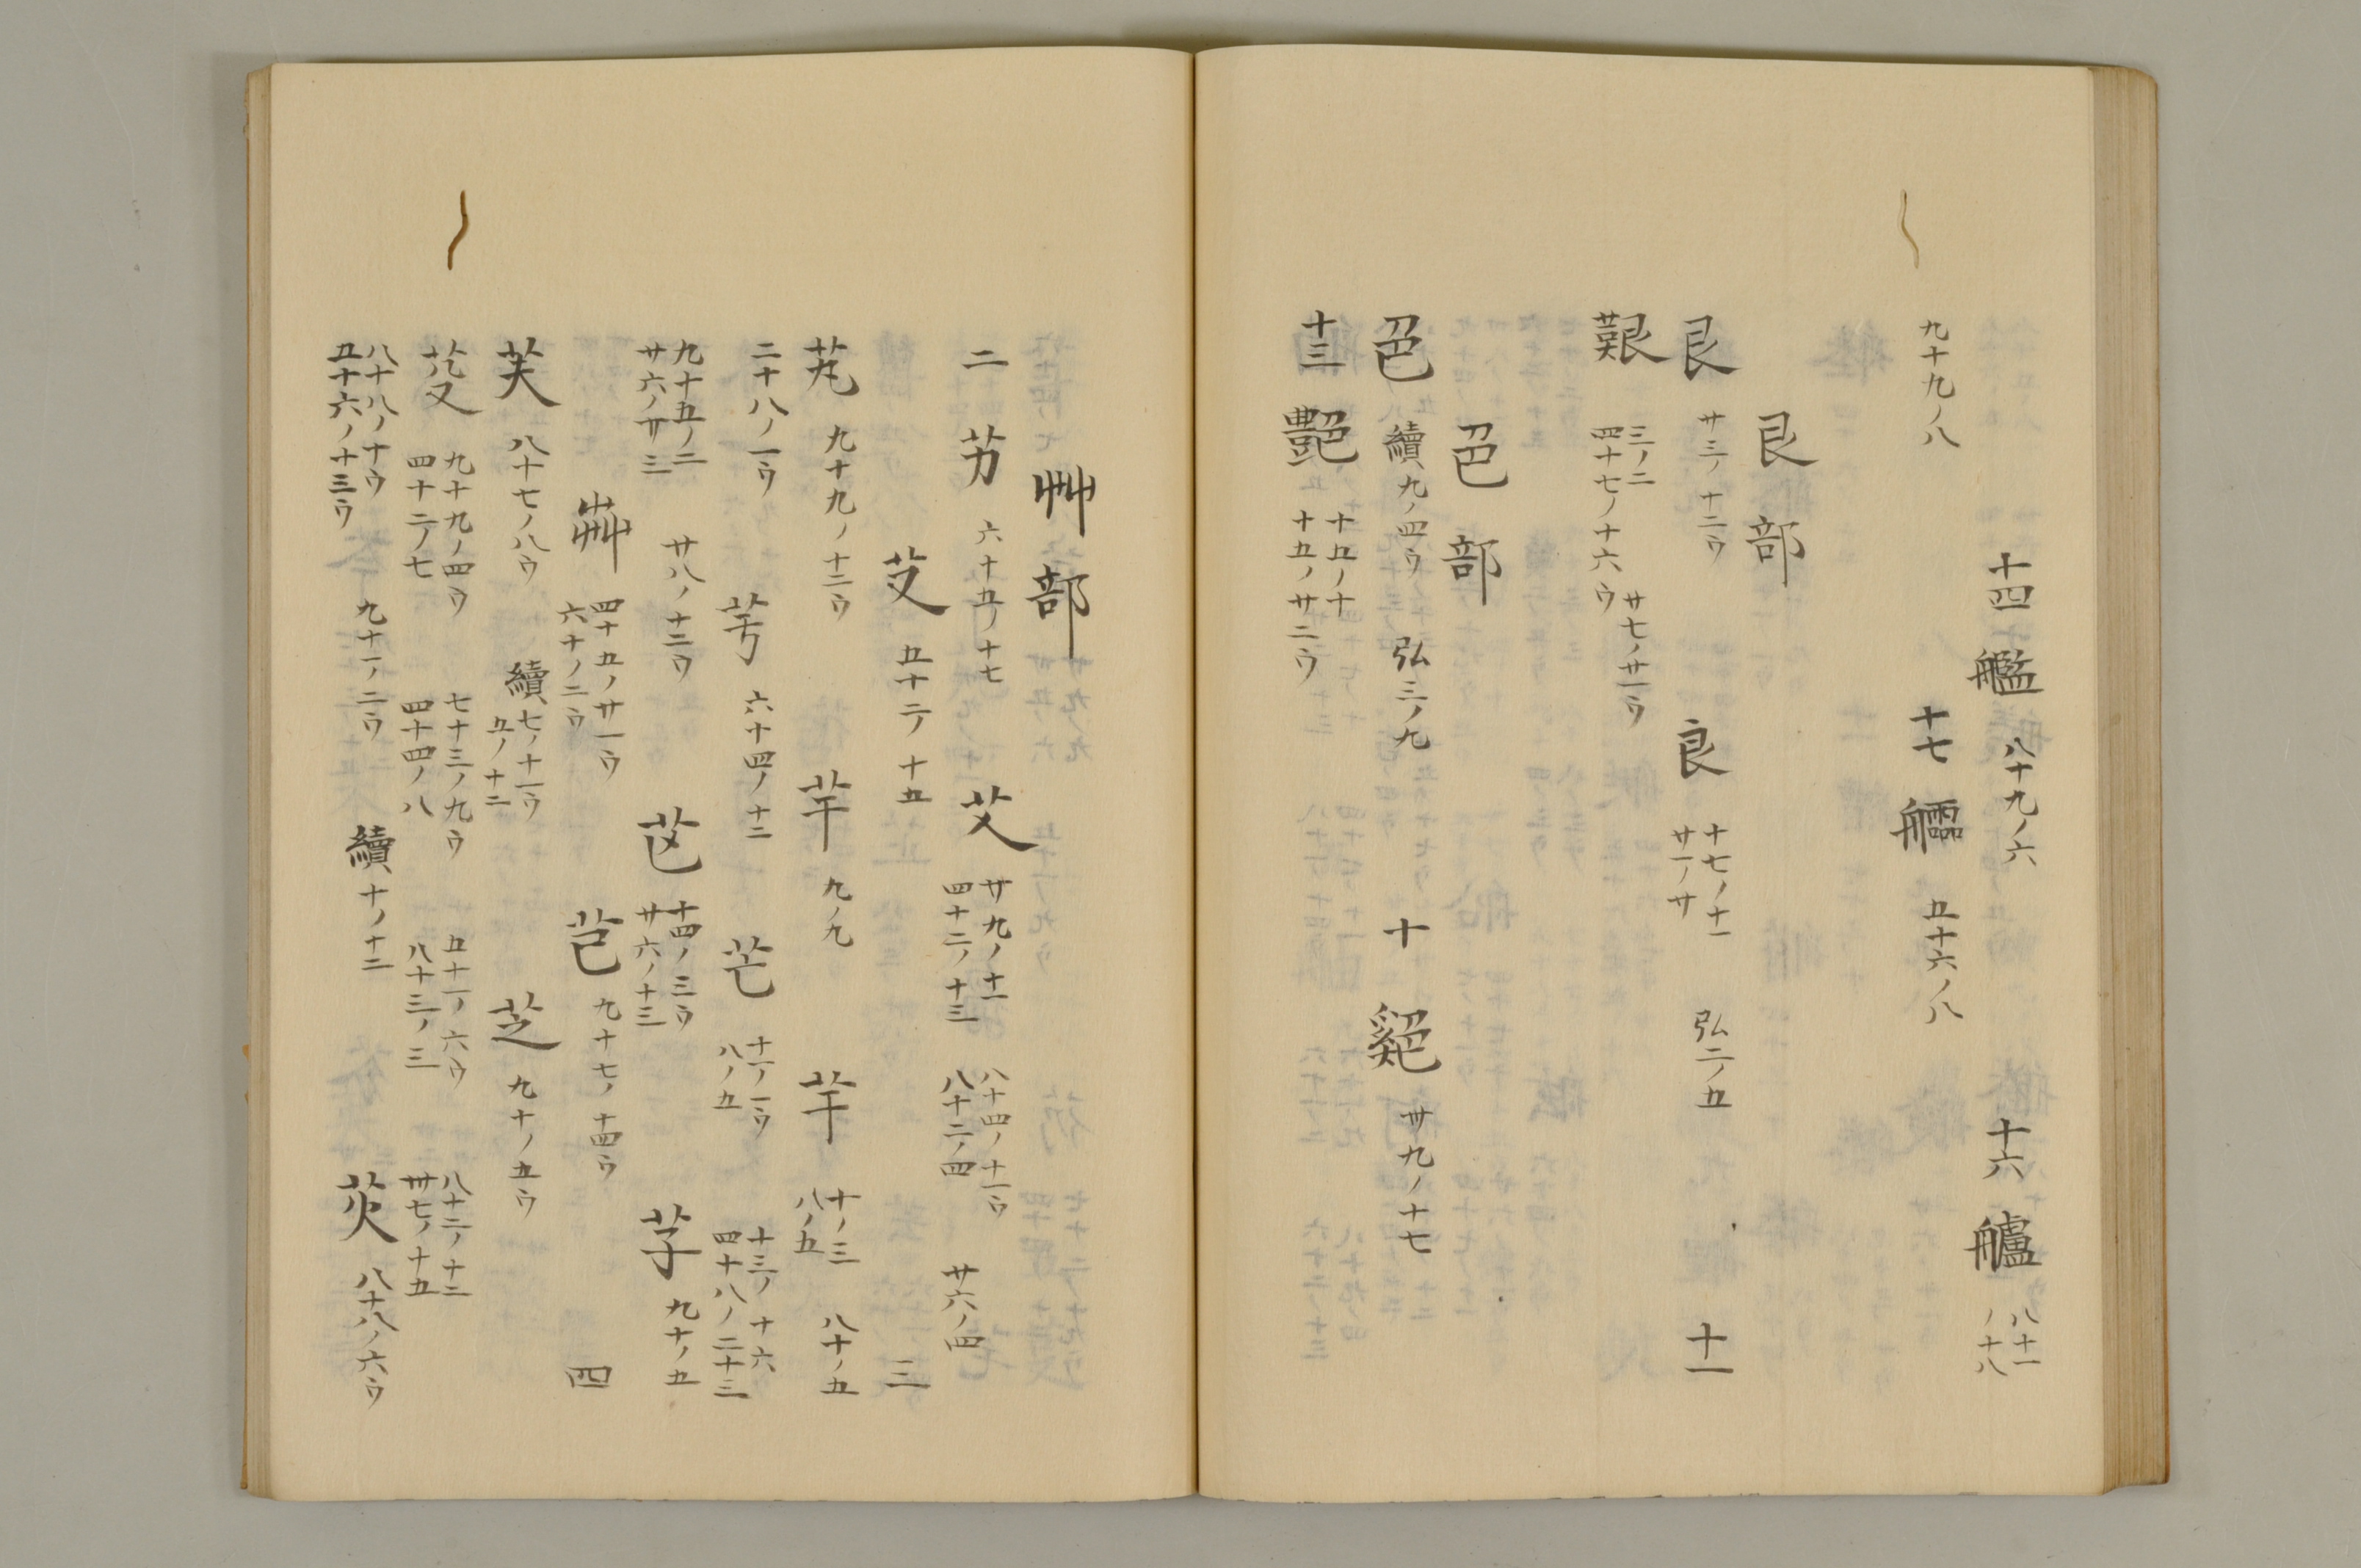 十四 艦 八十九ノ六 十六 艫 八十一ノ十八
九十九ノ八 十七 艫 五十六ノ八
艮部
艮 廿三ノ十二ウ 良 十七ノ十一 廿一ノ廿 弘二ノ五 十一
艱 三ノ二 四十七ノ十六ウ 廿七ノ廿一ウ
色部
色 續九ノ四ウ 弘三ノ九 十 卅九ノ十七
十三 艷 十五ノ十 十五ノ廿二ウ
艸部
二 艻 六十五ノ十七 艾 廿九ノ十一 四十二ノ十三 八十四ノ十一ウ 八十二ノ四 廿六ノ四
芆 五十二ノ十五 三
芃 九十九ノ十二ウ 芉 九ノ九 芋 十ノ三 八ノ五 八十ノ五
二十八ノ一ウ 芀 六十四ノ十二 芒 十一ノ一ウ 八ノ五 十三ノ十六 四十八ノ二十三
九十五ノ二 廿六ノ卅三 廿八ノ十二ウ 芭 十四ノ三ウ 廿六ノ十三 芓 九十ノ五
四十五ノ廿一ウ 六十ノ二ウ 芑 九十七ノ十四ウ 四
芙 八十七ノ八ウ 續七ノ十一ウ 五ノ十二 芝 九十ノ五ウ
芟 九十九ノ四ウ 四十二ノ七 七十三ノ九ウ 四十四ノ八 五十一ノ六ウ 八十三ノ三 八十二ノ十二 卅七ノ十五
八十八ノ十ウ 五十六ノ十三ウ 九十一ノ二ウ 續十ノ十二 芡 八十八ノ六ウ